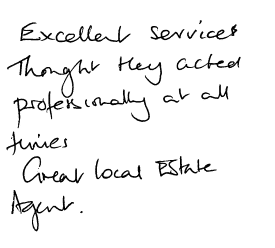 Excellent services
Thought they acted
professionally at all
times
Great local Estate
Agent.